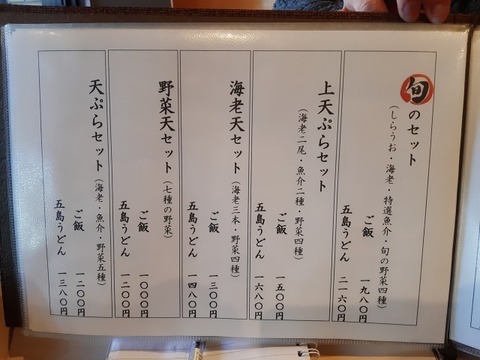 旬のセット
(しらうお・海老・特選魚介・旬の野菜四種)
ご飯 一九八〇円
五島うどん 二一六〇円
上天ぷらセット
(海老二尾・魚介二種・野菜四種)
ご飯 一五〇〇円
五島うどん 一六八〇円
海老天セット
(海老三本・野菜四種)
ご飯 一三〇〇円
五島うどん 一四八〇円
野菜天セット
(七種の野菜)
ご飯 一〇〇〇円
五島うどん 一二〇〇円
天ぷらセット
(海老・魚介・野菜五種)
ご飯 一二〇〇円
五島うどん 一三八〇円